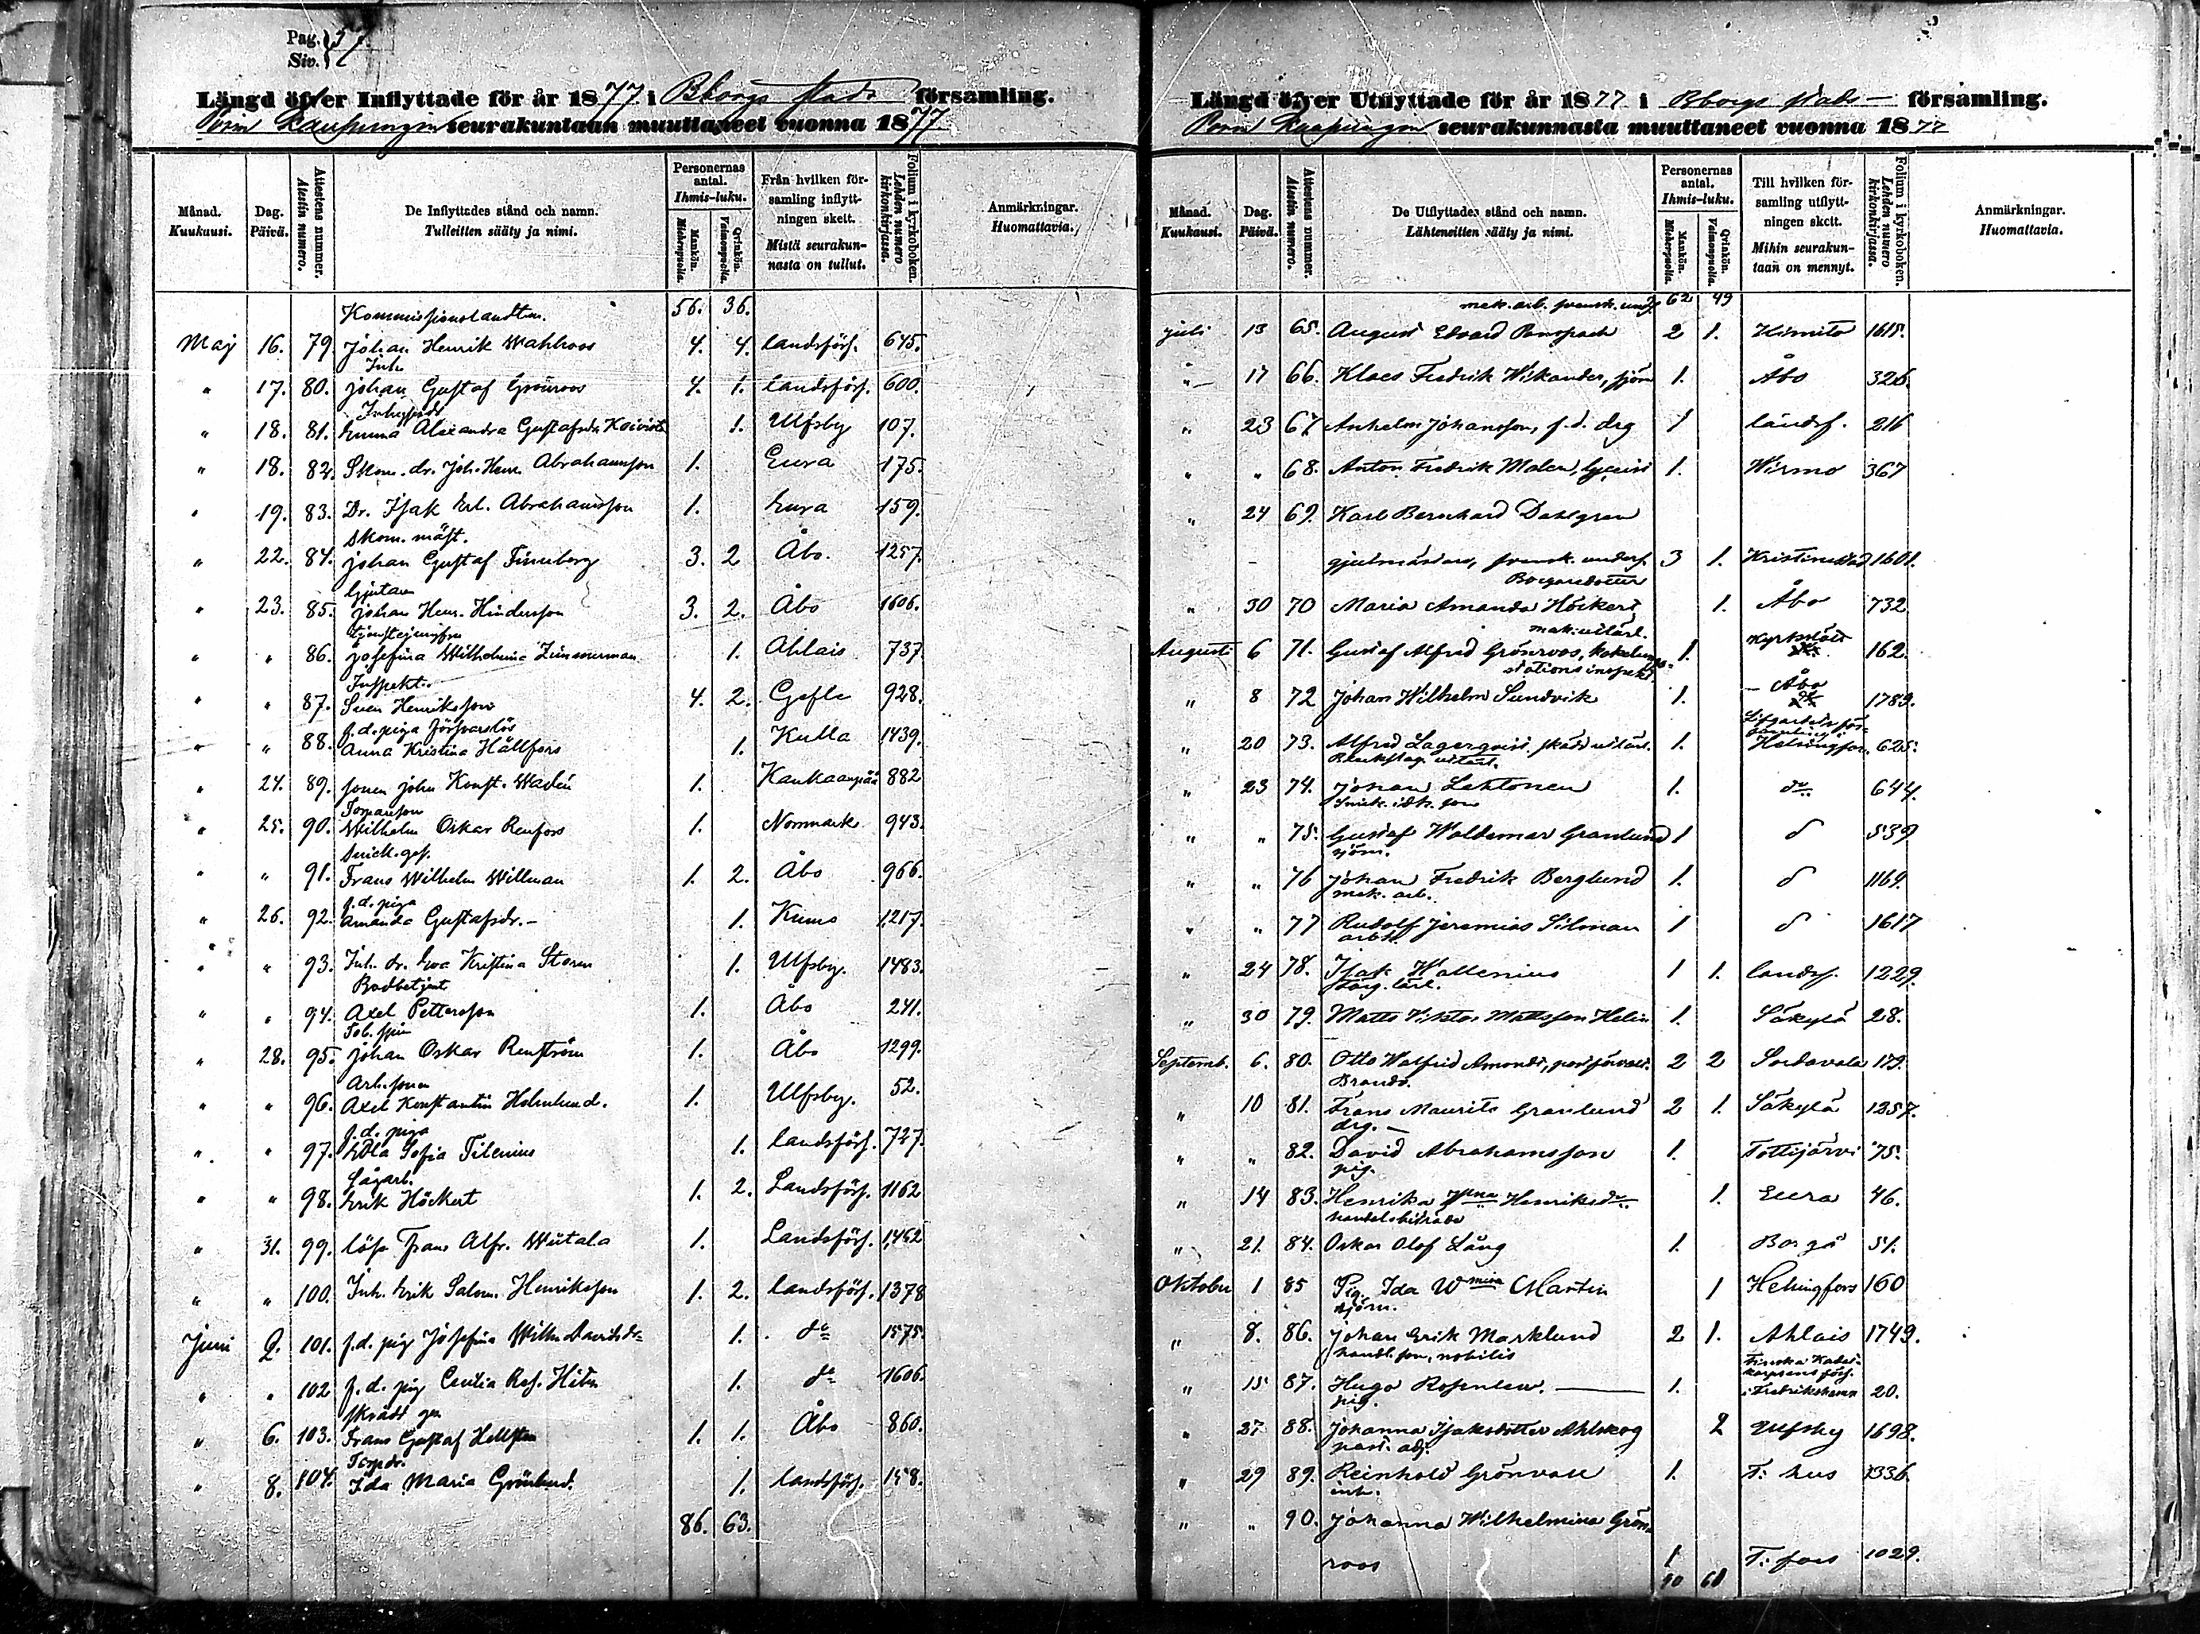 Pag. 37
Siv.
Längd öfver Inflyttade för år 1877 i Bborgs stads församling.
Porin Kaupungin seurakuntaan muuttaneet vuonna 1877
Månad. Kuukausi.
Dag. Päivä.
Attestens nummer. Atestin numero.
De Inflyttades stånd och namn. Tulleitten sääty ja nimi.
Personernas antal. Ihmis-luku.
Mankön. Miehenpuolia.
Qvinkön. Vaimonpuolia.
Från hvilken församling inflyttningen skett. Mistä seurakunnasta on tullut.
Folium i kyrkoboken. Lehden numero kirkonkirjassa.
Anmärkningar. Huomattavia.
56. 36.
Maj 16. 79. Johan Henrik Wahlroos 4. 4. landsförs. 645.
Inh.
" 17. 80. Johan Gustaf Grönroos 4. 1. landsförs. 600.
" 18. 81. Emma Alexandra Gustafsdr Koivisto 1. Ulfsby 107.
" 18. 82. Skom. dr. Joh. Henr. Abrahamsson 1. Eura 175.
" 19. 83. Dr. Isak Erl. Abrahamsson 1. Eura 159.
Skom. mäst.
" 22. 84. Johan Gustaf Finnberg 3. 2 Åbo. 1257.
Gjutaren
" 23. 85. Johan Henr. Hindersson 3. 2. Åbo 1606.
tjenstejungfru
" " 86. Josefina Wilhelmina Zimmerman 1. Ahlais 737.
Inspekt.
" " 87. Sven Henriksson 4. 2. Gefle 928.
f. d. piga försvarslös
" " 88. Anna Kristina Hällfors 1. Kulla 1439.
" 24. 89. sonen John Konst. Wadén 1. Kankaanpää 882
" 25. 90. Wilhelm Oskar Renfors 1. Norrmark 943.
Snick. ges.
" " 91. Frans Wilhelm Willman 1. 2. Åbo 966.
f. d. piga
" 26. 92. Amanda Gustafsdr. – 1. Kumo 1217.
" " 93. Inh. dr. Eva Kristina Storm 1. Ulfsby. 1483.
Bodbetjent
" " 94. Axel Pettersson 1. Åbo 241.
Tob. spin
" 28. 95. Johan Oskar Renström 1. Åbo 1299.
Arb. sonen
" " 96. Axel Konstantin Holmlund. 1. Ulfsby. 52.
f. d. piga
" " 97. Edla Sofia Tilenius 1. landsförs. 727.
Sågarb.
" " 98. Erik Höckert 1. 2. Landsförs. 1162
" 31. 99. lösk. Frans Alfr. Wiitala 1. Landsförs. 1,462
" " 100. Inh. Erik Salom. Henriksson 1. 2. landsförs. 1378
Juni 2. 101. f. d. pig Josefina Wilhn Davidsdr 1. do 1575.
" " 102 f. d. pig Cecilia Ros. 1. do 1606.
" 6. 103. Frans Gustaf Hellsten 1. 1. Åbo 860.
Torpdr.
" 8. 104. Ida Maria Grönlund. 1. landsförs. 158.
86. 63.
Längd öfver Utflyttade för år 1877 i Bborgs stads – församling.
Porin Kaupungin seurakunnasta muuttaneet vuonna 1877
Månad. Kuukausi.
Dag. Päivä.
Attestens nummer. Atestin numero.
De Utflyttades stånd och namn. Lähteneitten sääty ja nimi.
Personernas antal. Ihmis-luku.
Mankön. Miehenpuolia.
Qvinkön. Vaimonpuolia.
Till hvilken församling utflyttningen skett. Mihin seurakuntaan on mennyt.
Folium i kyrkoboken. Lehden numero kirkonkirjassa.
Anmärkningar. Huomattavia.
mek. arb. svensk. und. 62 49
juli 13 65. August Edvard 2 1. Kimito 1615.
" 17 66. Klaes Fredrik Wikander, sjöm 1. Åbo 326.
" 23 67 Anhelm Johansson, f. d. drg 1 landsf. 216
" " 68. Anton Fredrik Malen, 1. Wirmo 367
" 24 69. Karl Bernhard Dahlgren
gjutmästare, svensk. unders. 3 1. Kristinestad 1601.
Borgaredotter
" 30 70 Maria Amanda Höckert 1. Åbo 732
Augusti 6 71. Gustaf Alfred Grönroos, 1. Kyrkslätt 162.
stationsinspekt.
" 8 72 Johan Wilhelm Sundvik 1. Åbo 1789.
" 20 73. Alfred Lagerqvist. 1. Helsingfors 625.
" 23 74. Johan Lehtonen 1. do 644.
Snick. idk. son
" " 75. Gustaf Woldemar Granlund 1 d 539
sjöm.
" " 76 Johan Fredrik Berglund 1. d 1169.
mek. arb.
" " 77 Rudolf Jeremias Silman 1 d 1617
arbk.
" 24 78. Isak Wallenius 1 1. landsf. 1229.
färg. lärl.
" 30 79. Matts Viktor Mattsson Helin 1. Säkylä 28.
Septemb. 6. 80. Otto Walfrid Amondt, postförvalt. 2 2 Sordavala 179.
" 10 81. Frans Maurits Granlund 2 1. Säkylä 1257.
drg. –
" " 82. David Abrahamsson 1. Tottijärvi 75.
pig.
" 14 83. Henrika Henriksdr 1. Eura 46.
handelsbiträde
" 21. 84. Oskar Olof Lång 1. Borgå 51.
Oktober 1 85 Pig. Ida Wmina Martin 1 Helsingfors 160
sjöm.
" 8. 86. Johan Erik Marklund 2 1. Ahlais 1749.
handl. son, nobilis
Finska Kadettkorpsens förs.
" 15 87. Hugo Rosenlew. — 1. i Fredrikshamn 20.
pig.
" 27 88. Johanna Isaksdotter Ahlskog 2 Ulfsby 1698.
past. adj.
" 29 89. Reinhold Grönvall 1. T: hus 1336
inh.
" " 90. Johanna Wilhelmina Grön-
roos 1 T: fors 1029.
90 61